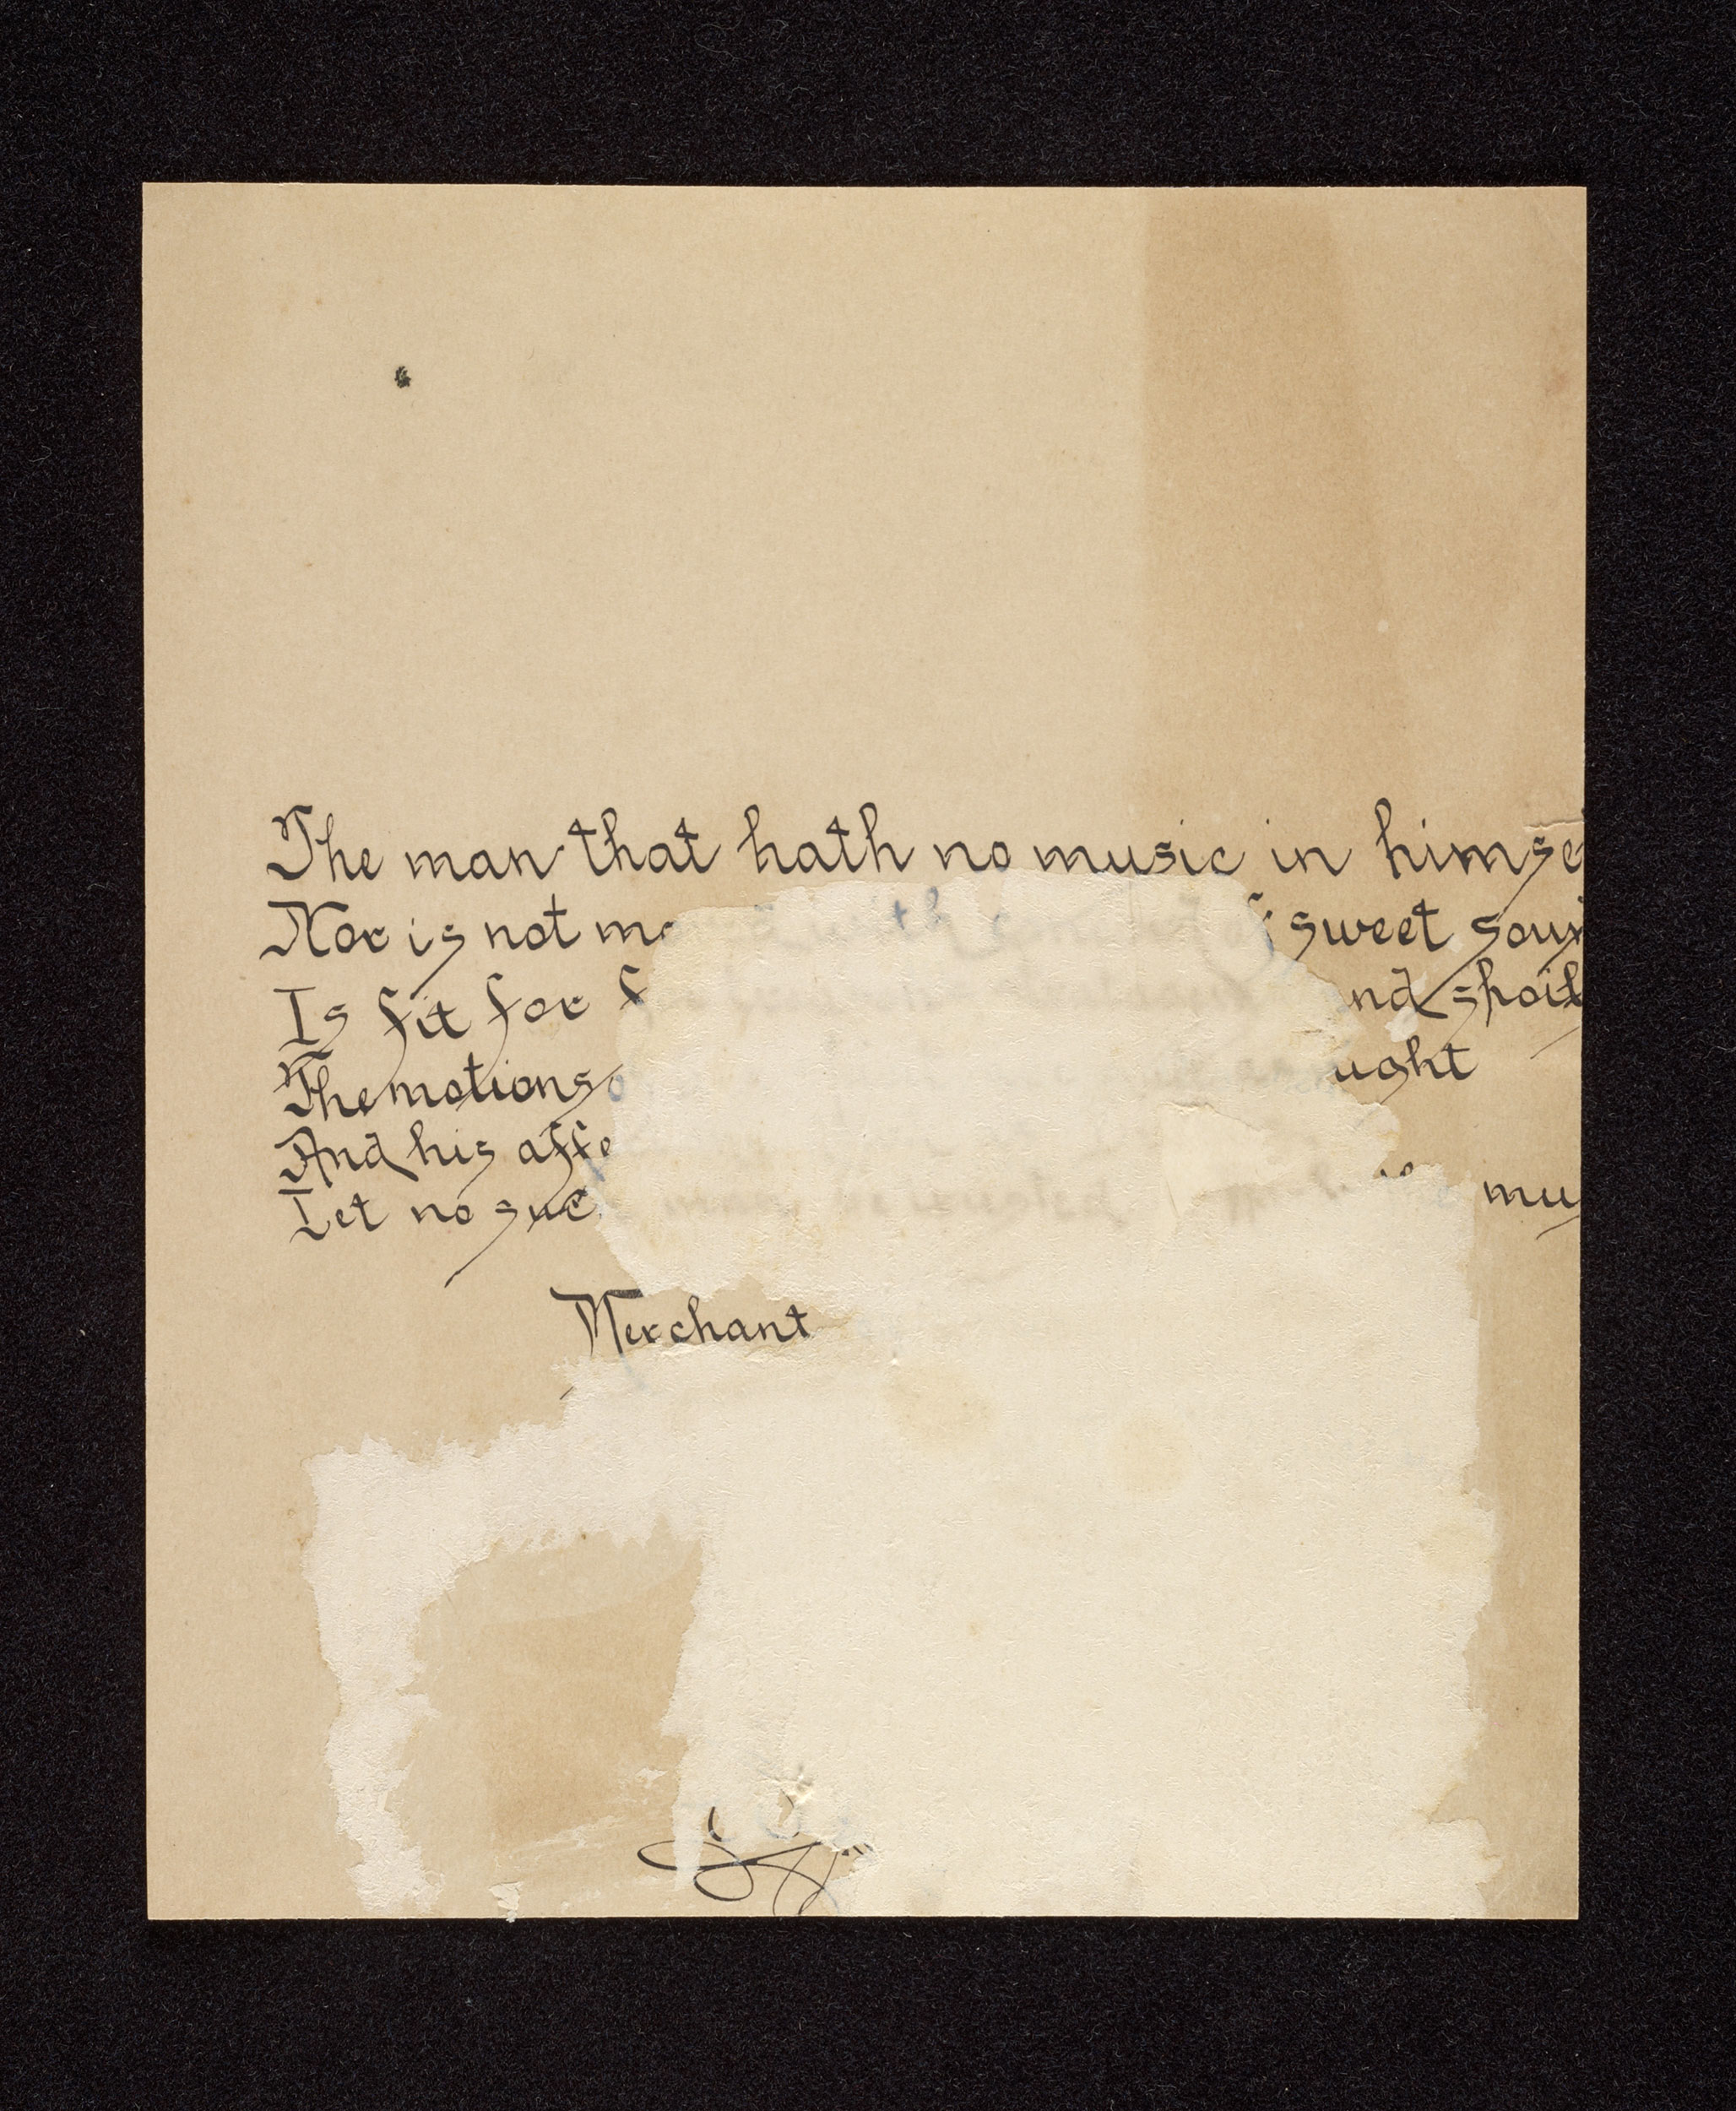 The man that hath no music in himse
Nor is not mo sweet soun
Is fit for nd spoil
The motions ught
And his affe
Let no suc mu
Merchant